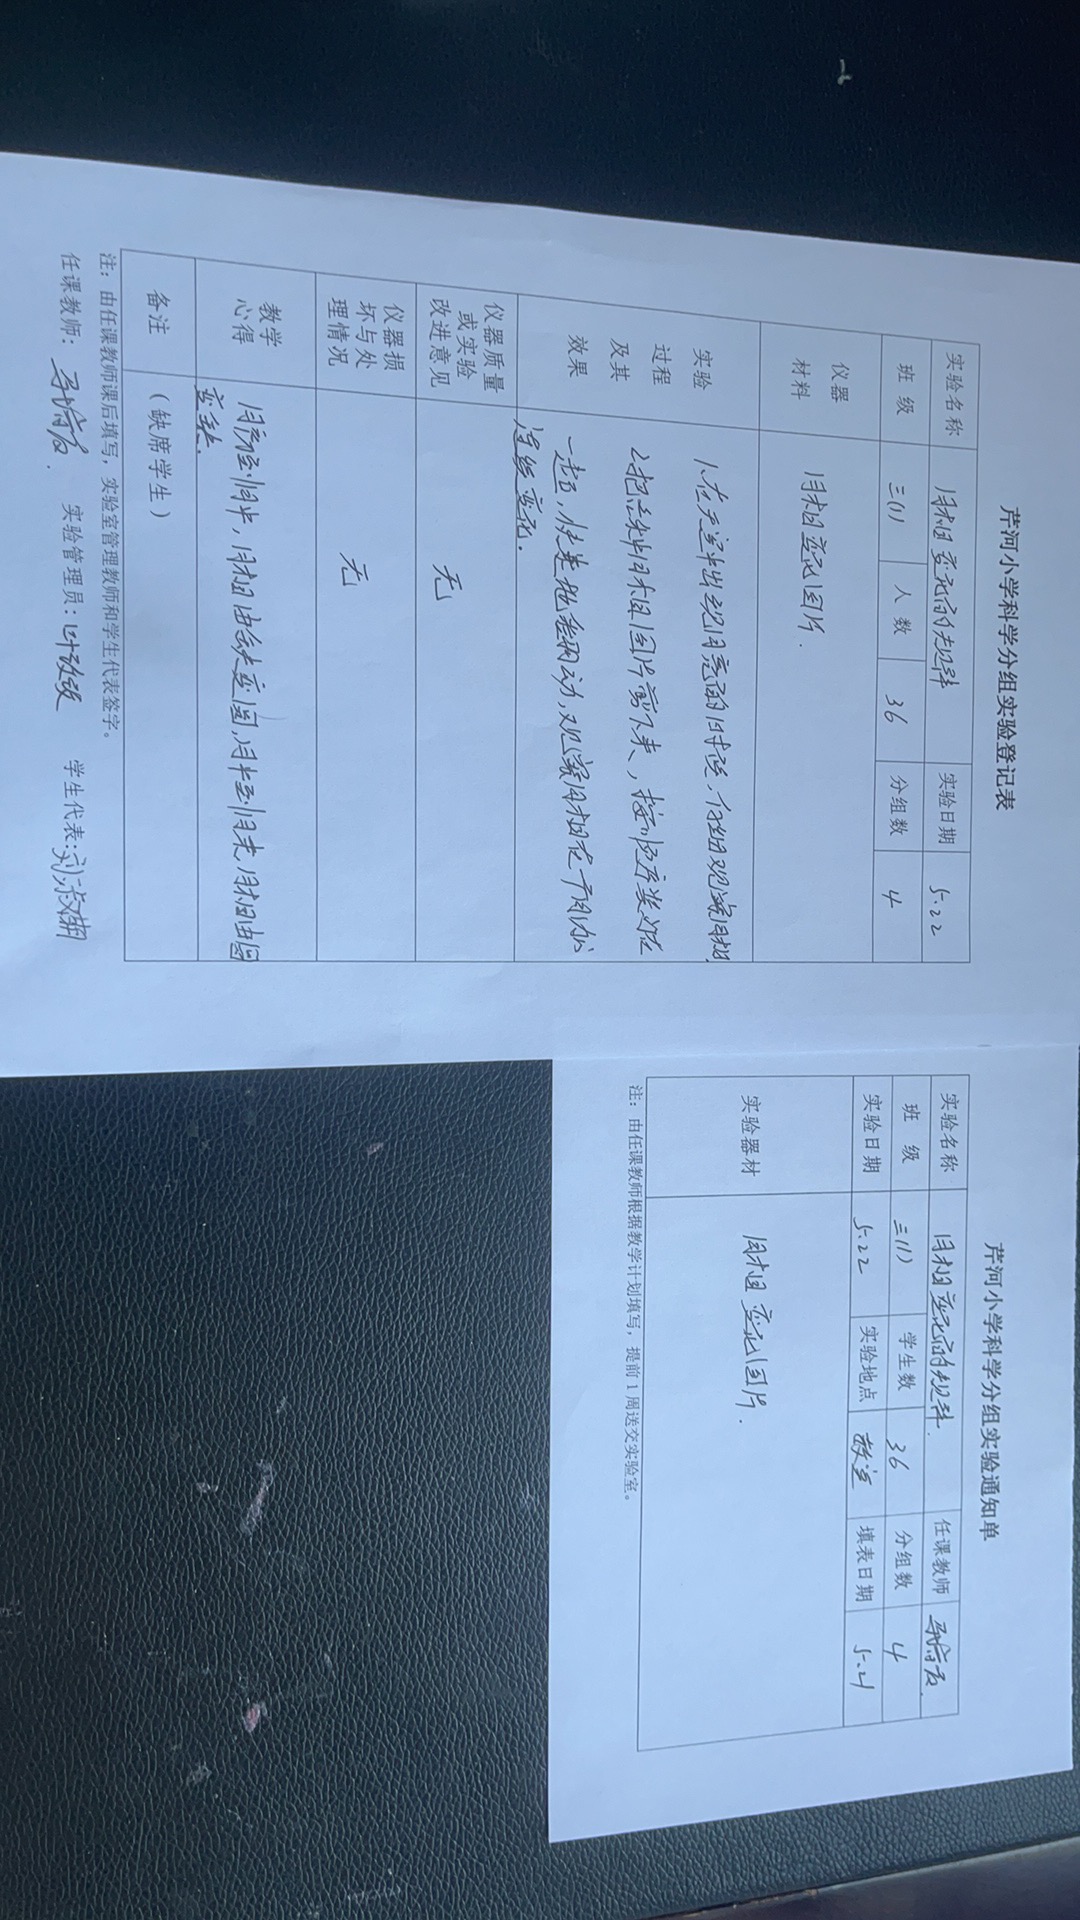 芹河小学科学分组实验登记表
实验名称 月相变化的规律 实验日期 5.22
班 级 三(1) 人 数 36 分组数 4
仪器
材料
月相变化图片.
实验
过程
及其
效果
1.在天空中出现月亮的时候,仔细观察月相.
2.把各种月相图片剪下来,按顺序装订在
一起,快速地翻动,观察月相在一个月内的
连续变化.
仪器质量
或实验
改进意见
无
仪器损
坏与处
理情况
无
教学
心得
月初到月中,月相由缺变圆,月中到月末月相由圆
变缺.
备注
(缺席学生)
注:由任课教师课后填写,实验室管理教师和学生代表签字。
任课教师: 实验管理员: 学生代表:
芹河小学科学分组实验通知单
实验名称 月相变化的规律. 任课教师
班 级 三(1) 学生数 36 分组数 4
实验日期 5.22 实验地点 教室 填表日期 5.21
实验器材 月相变化图片.
注:由任课教师根据教学计划填写,提前1周送交实验室。